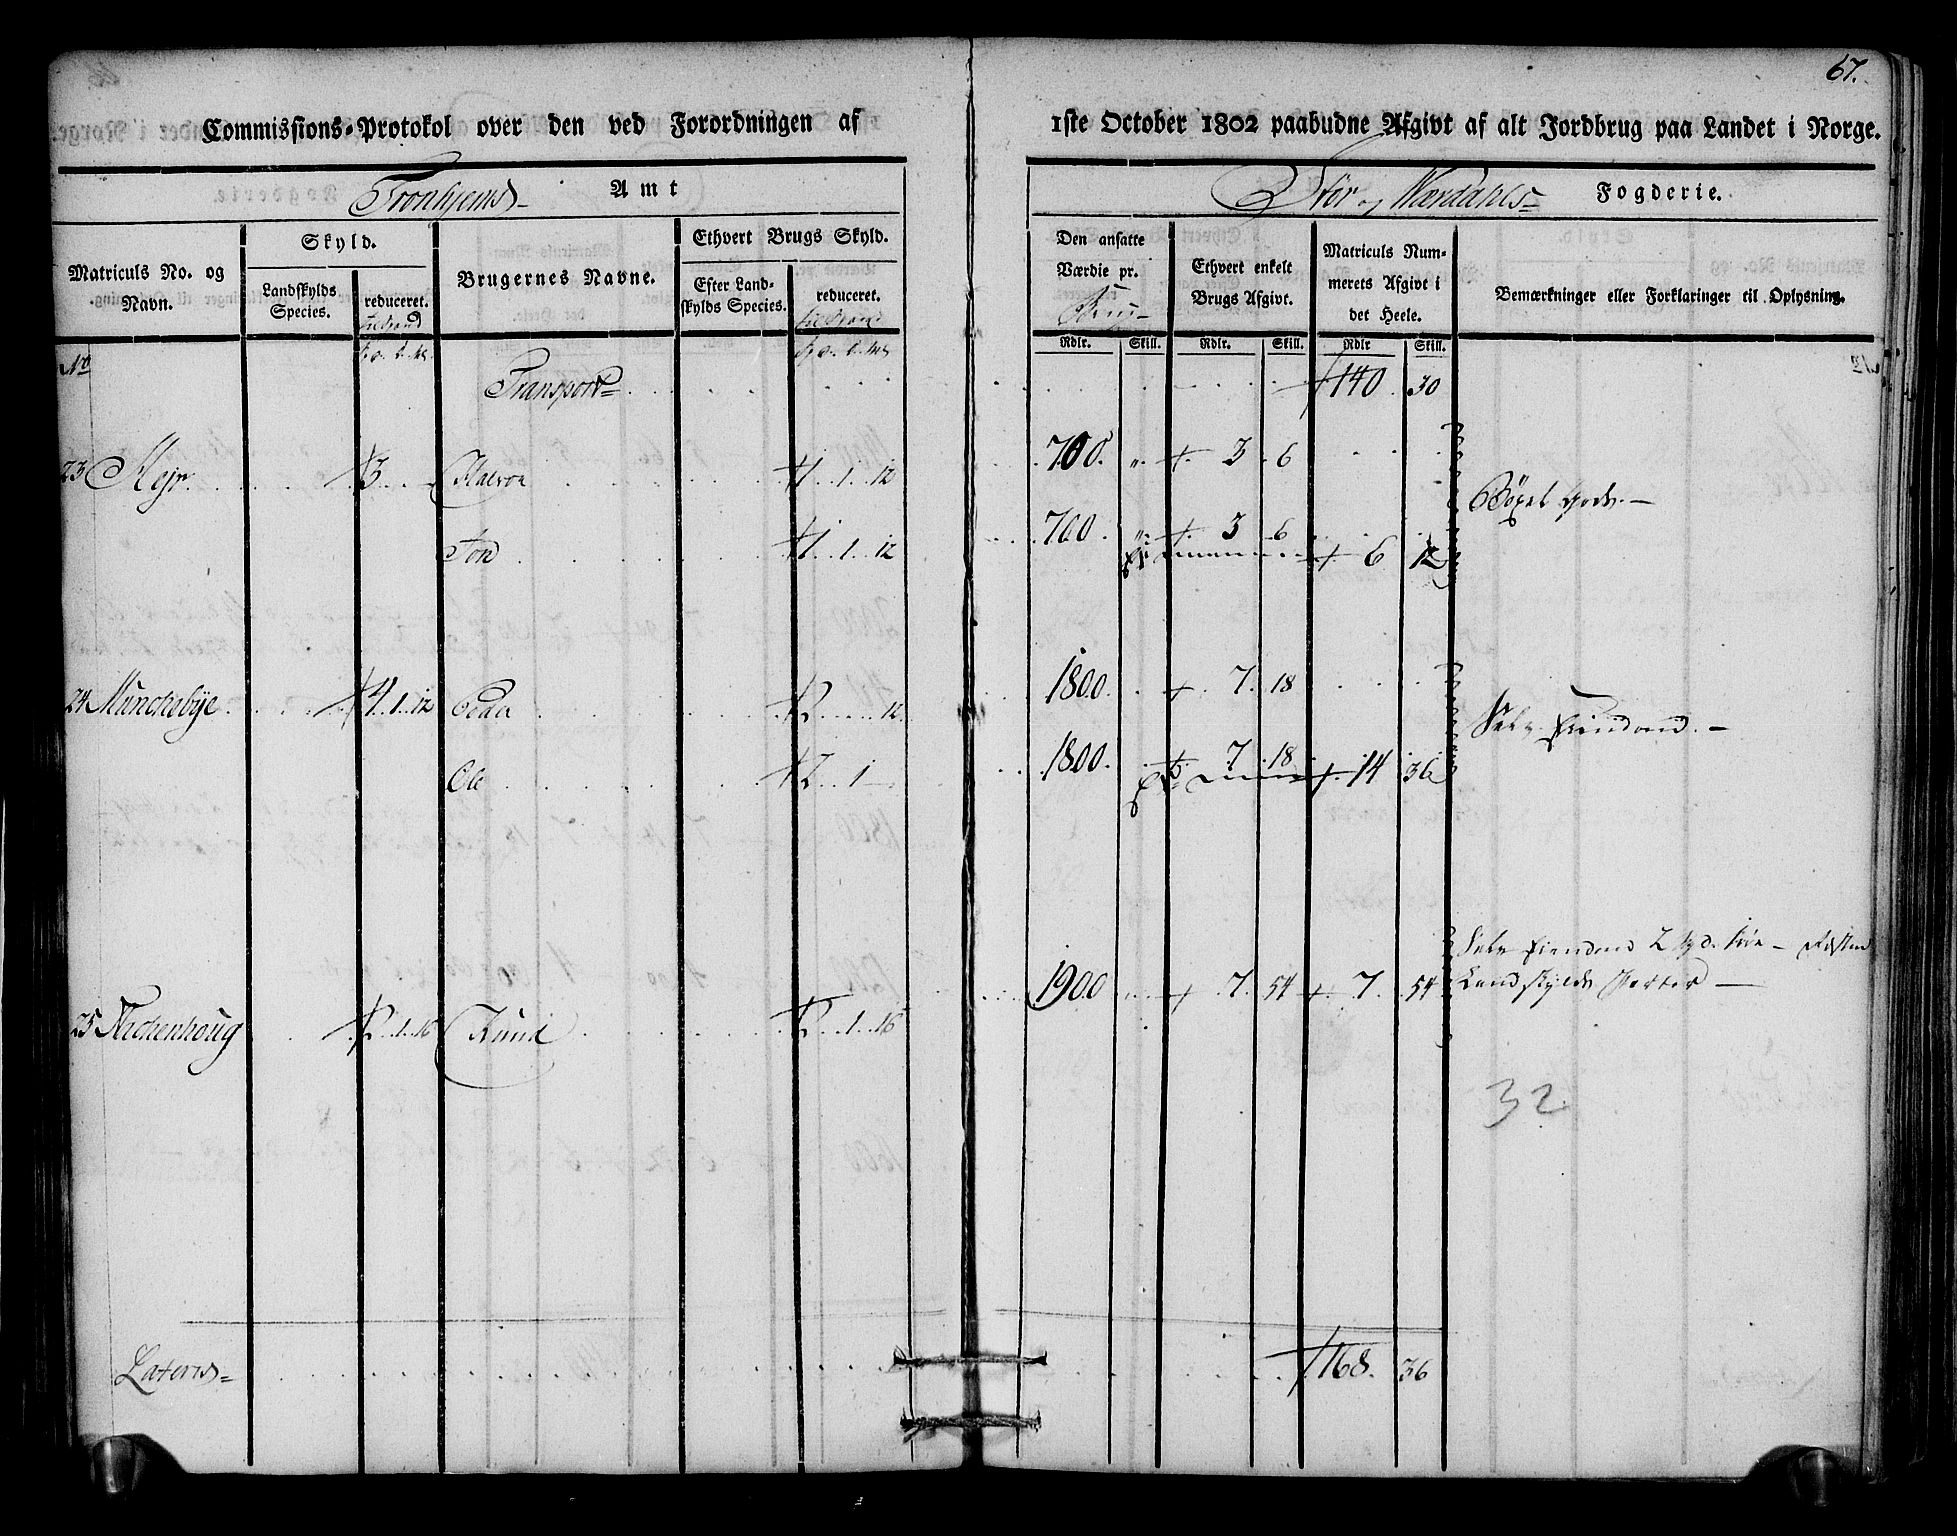 67.
Commissions-Protokol over den ved Forordningen af 1ste October 1802 paabudne Afgivt af alt Jordbrug paa Landet i Norge.
Tronhjems Amt
Stör og Wærdahls Fogderie.
Matriculs No. og Navn.
Skyld.
Landskylds Species.
reduceret.
Brugernes Navne.
Ethvert Brugs Skyld.
Efter Landskylds Species.
reduceret.
Den ansatte Værdie pr.
Ethvert enkelt Brugs Afgivt.
Matriculs Nummerets Afgivt i det Heele.
Bemærkninger eller Forklaringer til Oplysning.
Rdlr. Skill. Rdlr. Skill. Rdlr Skill.
No
Transport 140 30
23 3 Halvor 1 1 12 700 3 6
Jon 1 1 12 700 3 6
6 12
24 Munchebye 4 1 12 Peder 2 12 1800 7 18
Ole 2 1 1800 7 18 14 36
25 2 1 16 Knud 2 1 16 1900 7 54 7 54
32
Lateris 168 36